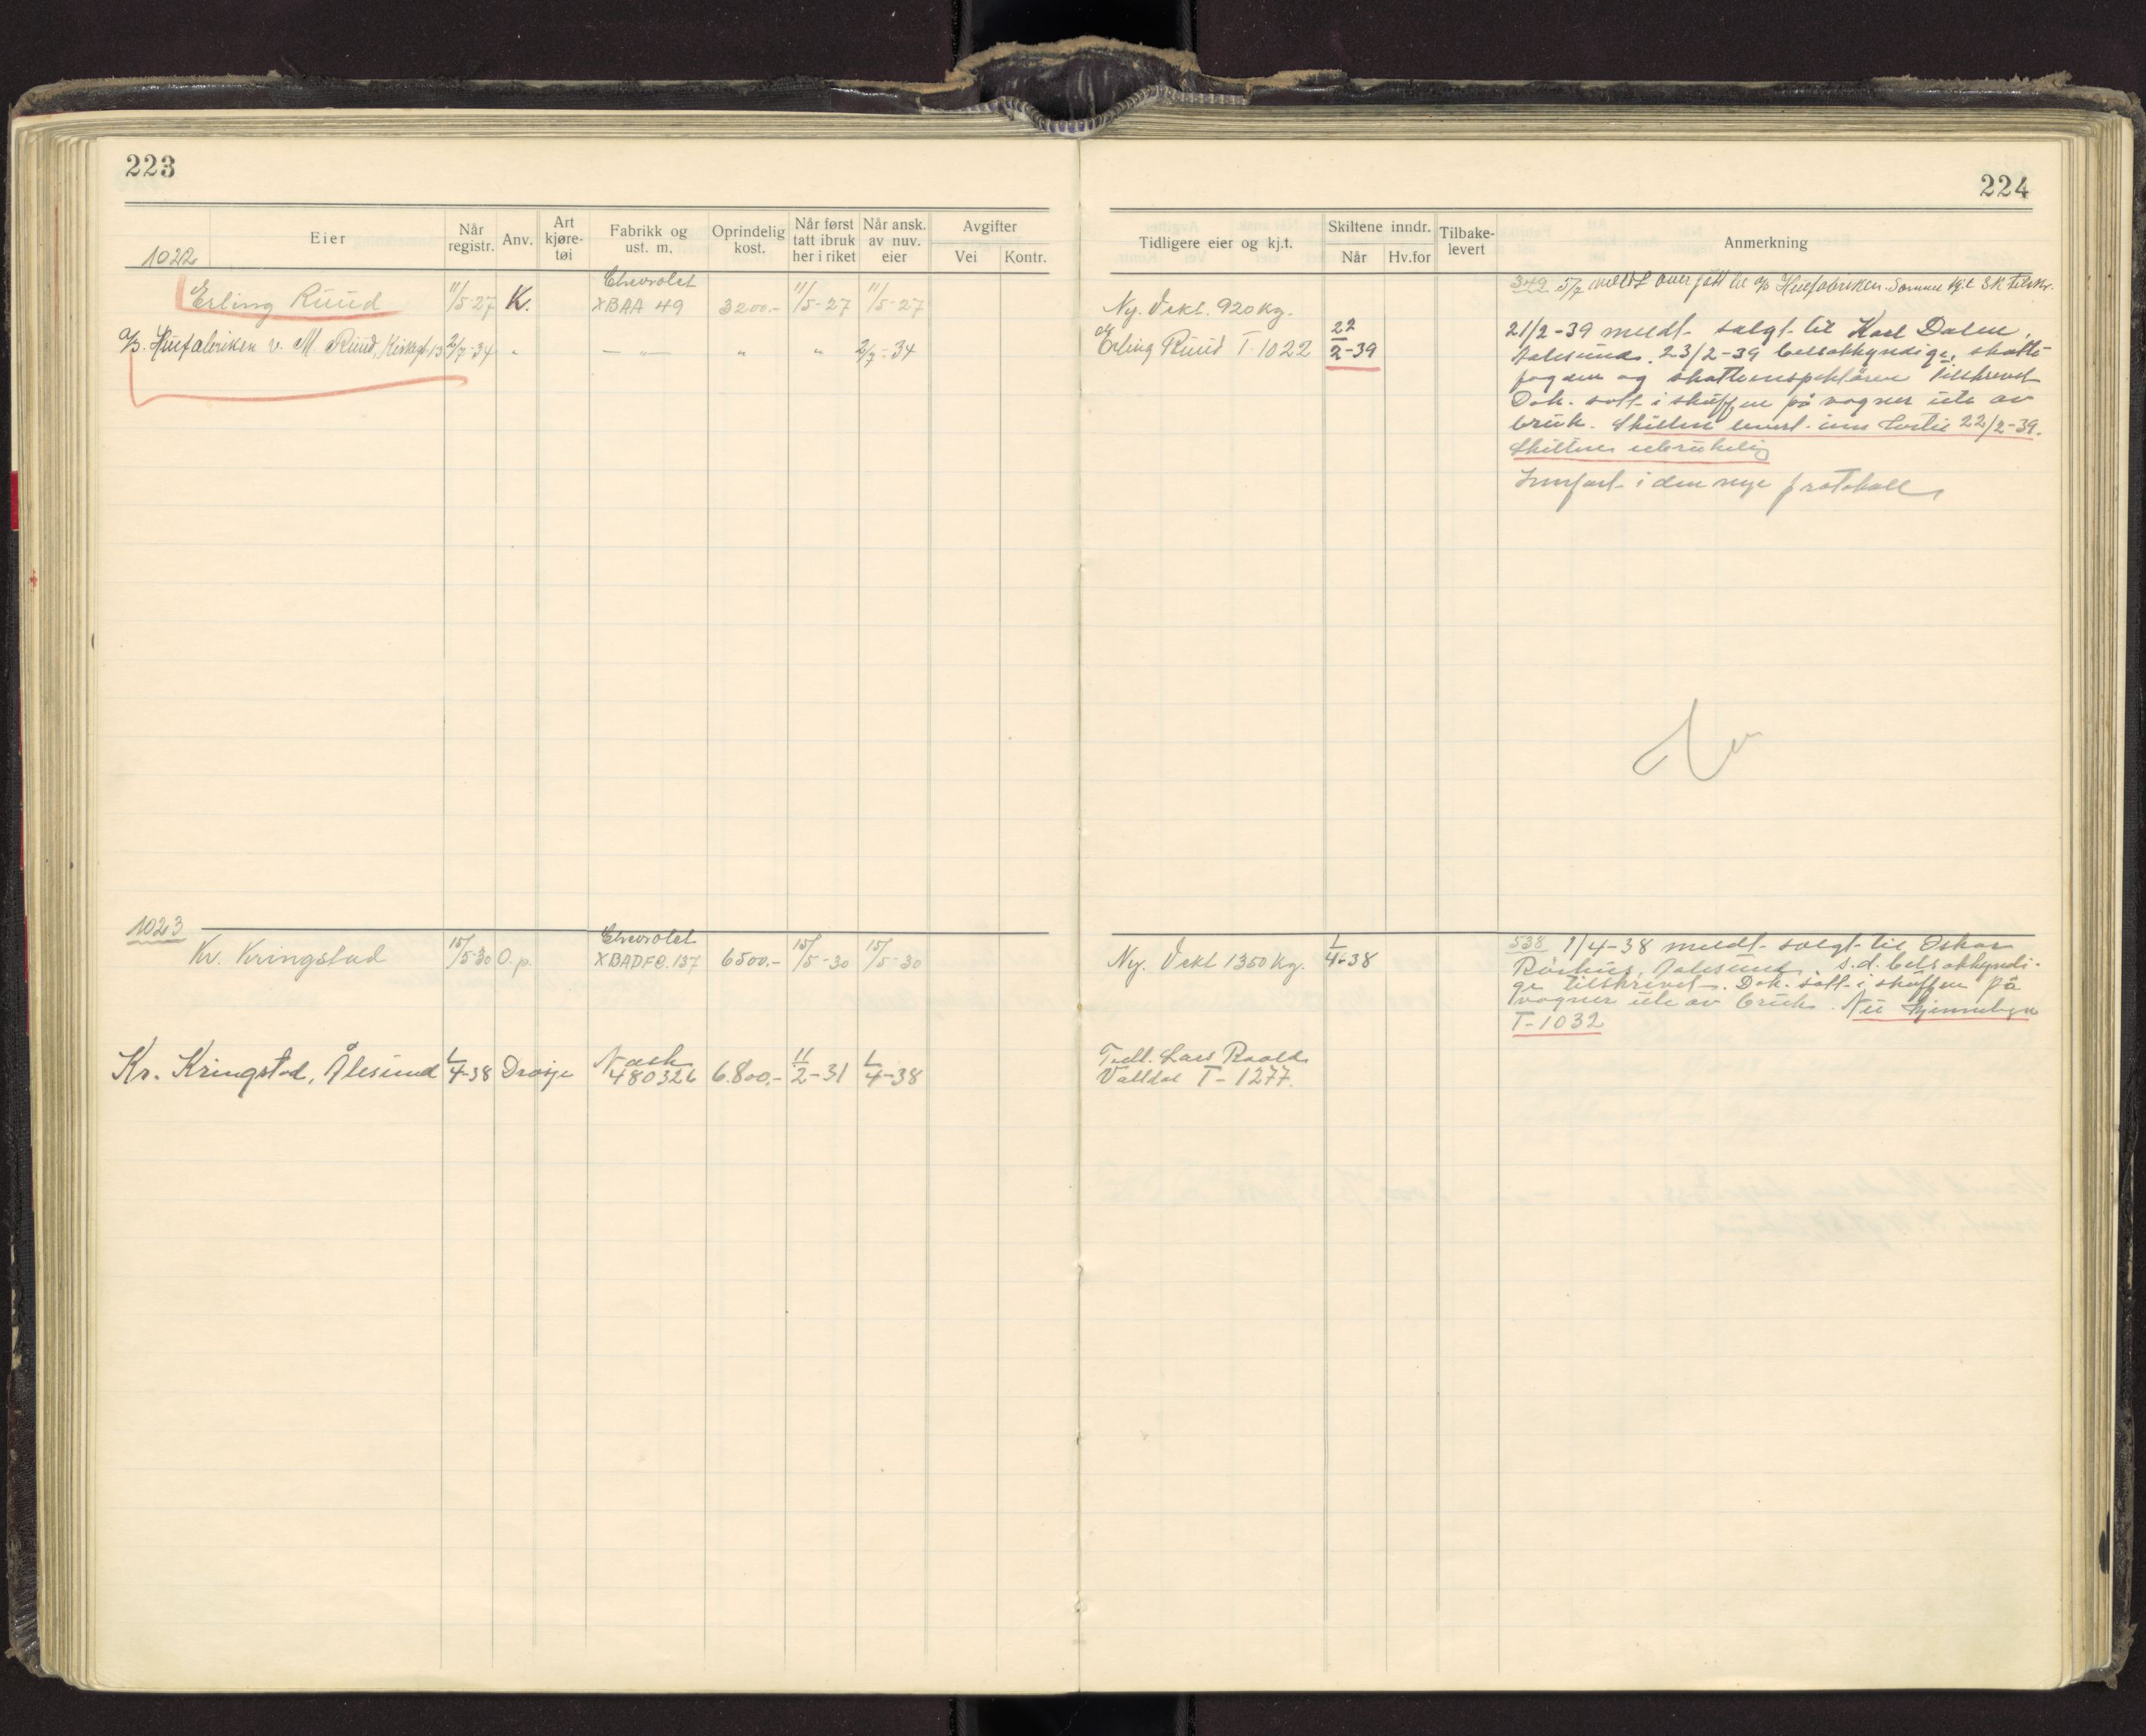 223
224
Eier
Når registr.
Anv.
Art kjøre-tøi
Fabrikk og ust. m.
Oprindelig kost.
Når først tatt ibruk her i riket
Når ansk. av nuv. eier
Avgifter
Vei
Kontr.
Tidligere eier og kj.t.
Skiltene inndr.
Når
Hv.for
Tilbake-levert
Anmerkning
1022
Erling Ruud 11/5-27 K. Chevrolet XBAA 49 3200.- 11/5-27 11/5-27
Ny. Vekt. 920 kg.
349 5/7 meldt overført til A/S Huefabriken. Samme kj.t. SK tilskr.
A/S. Huefabriken v. M. Ruud, Kirkegt. 13 2/7-34 " — " — " " 2/7-34
Erling Ruud T-1022 22/2-39
21/2-39 meldt solgt til Karl Dalen,
Aalesund. 23/2-39 bilsakkyndige, skatte-
fogden og skatteinspektören tilskrevet
Dok. satt i skuffen på vogner ute av
bruk. Skiltene levert inn hertil 22/2-39.
Skiltene ubrukelig
Innført i den nye protokoll
1023
Kr. Kringstad 15/5-30 O.p. Chevrolet XBADFC.137 6500.- 15/5-30 15/5-30
Ny. Vekt 1350 kg. 1/4-38
538 1/4-38 meldt solgt til Oskar
Rörhus, Aalesund. s.d. bilsakkyndi-
ge tilskrevet. Dok. satt i skuffen på
vogner ute av bruk. Nu kjennetegn
T-1032
Kr. Kringstad, Ålesund 1/4-38 Drosje Nash 480326 6.800.- 11/2-31 1/4-38
Tidl. Lars Raald
Valldal T-1277.